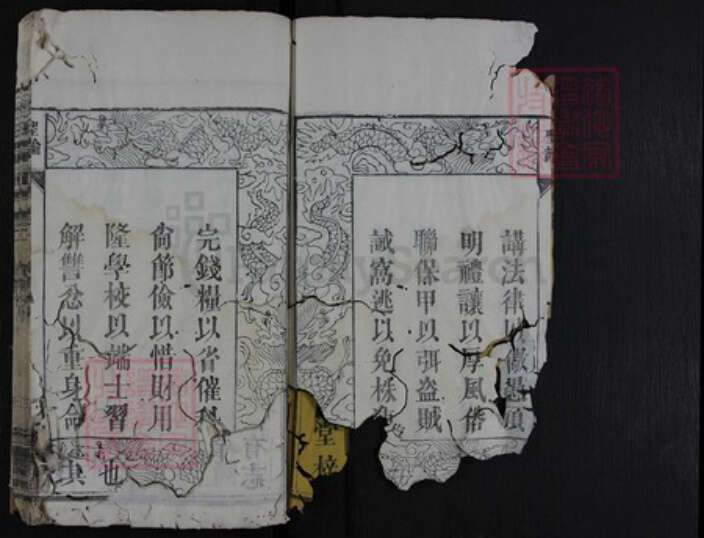 講法律以儆愚頑
明禮讓以厚風俗
聯保甲以弭盜賊
誡窩逃以免株
完錢糧以省催科
尙節儉以惜財用
隆學校以端士習
解讐忿以重身命
堂梓
有志
也